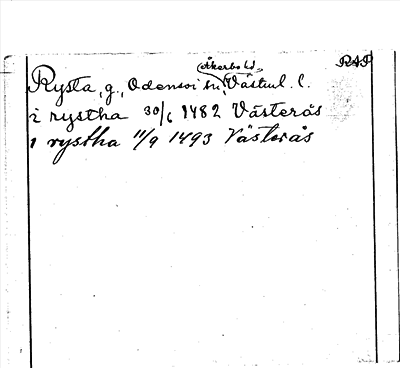 Åkerbo hd. RAP
Rysta, g., Odensvi sn, Västml. l.
i rystha 30/6 1482 Västerås
i rystha 11/9 1493 Västerås